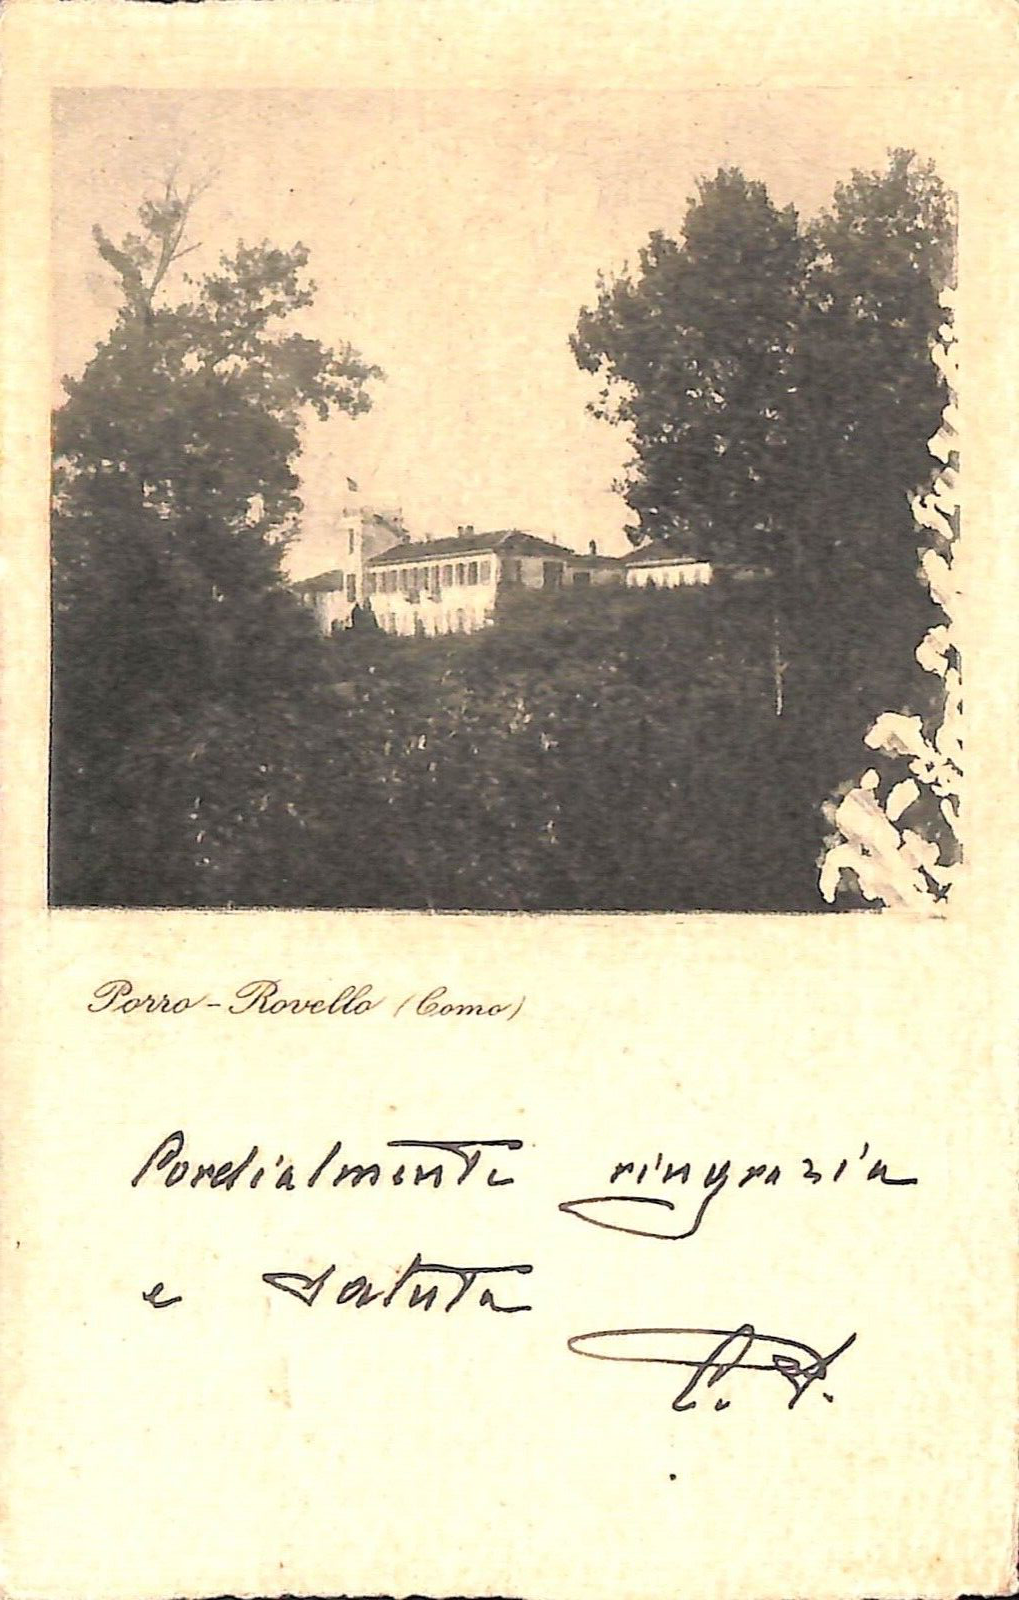 Porro - Rovello (Como)
Cordialmente ringrazia
e saluta